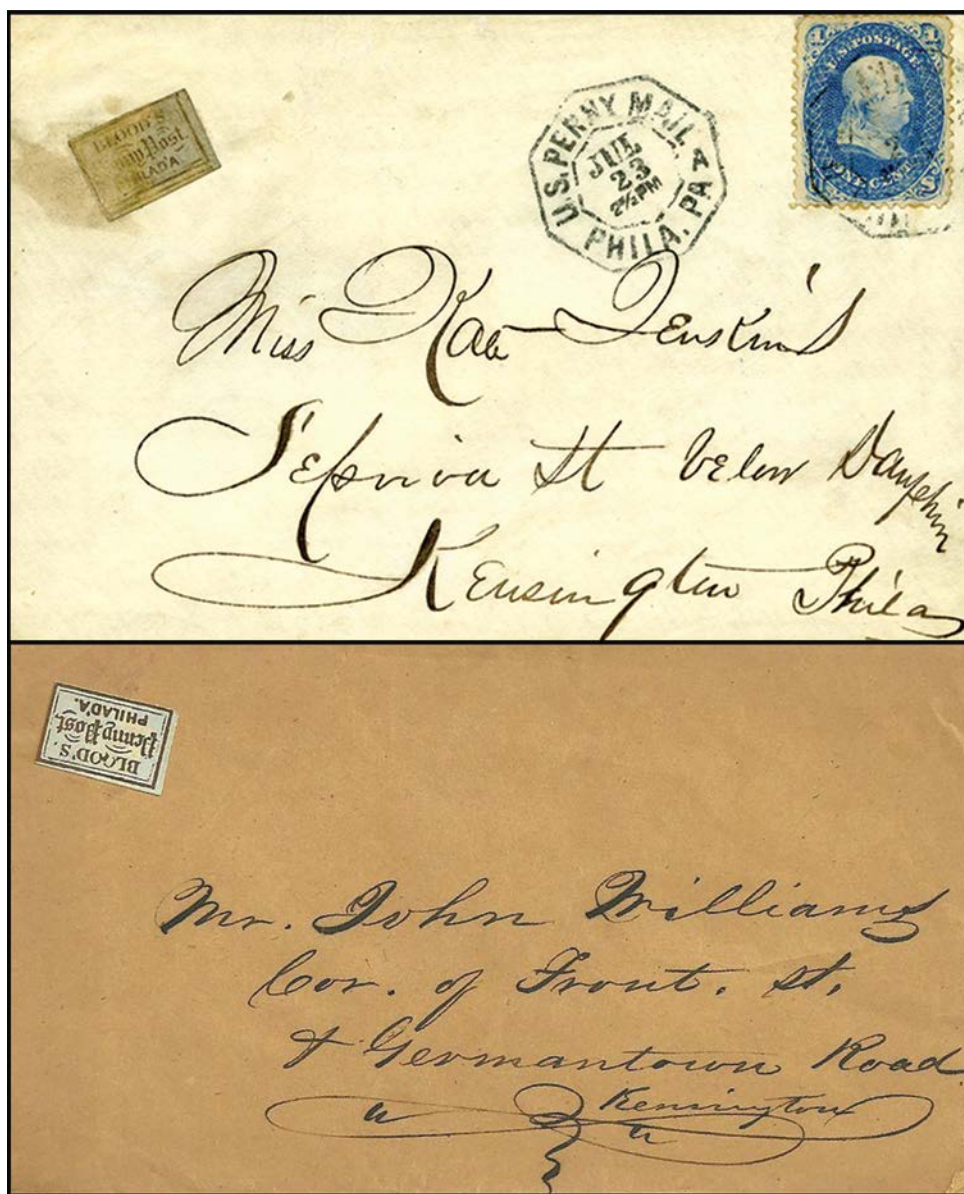 BLOOD'S
Penny Post.
PHILAD'A
U.S. PENNY MAIL
PHILA. PA
JUL
23
2½ PM
1 U.S. POSTAGE 1
ONE CENT
Miss Kate Jenkins
St below Dauphin
Kensington Phila
BLOOD'S
Penny Post.
PHILAD'A.
Mr. John Williams
Cor. of Front. st.
& Germantown Road
Kensington